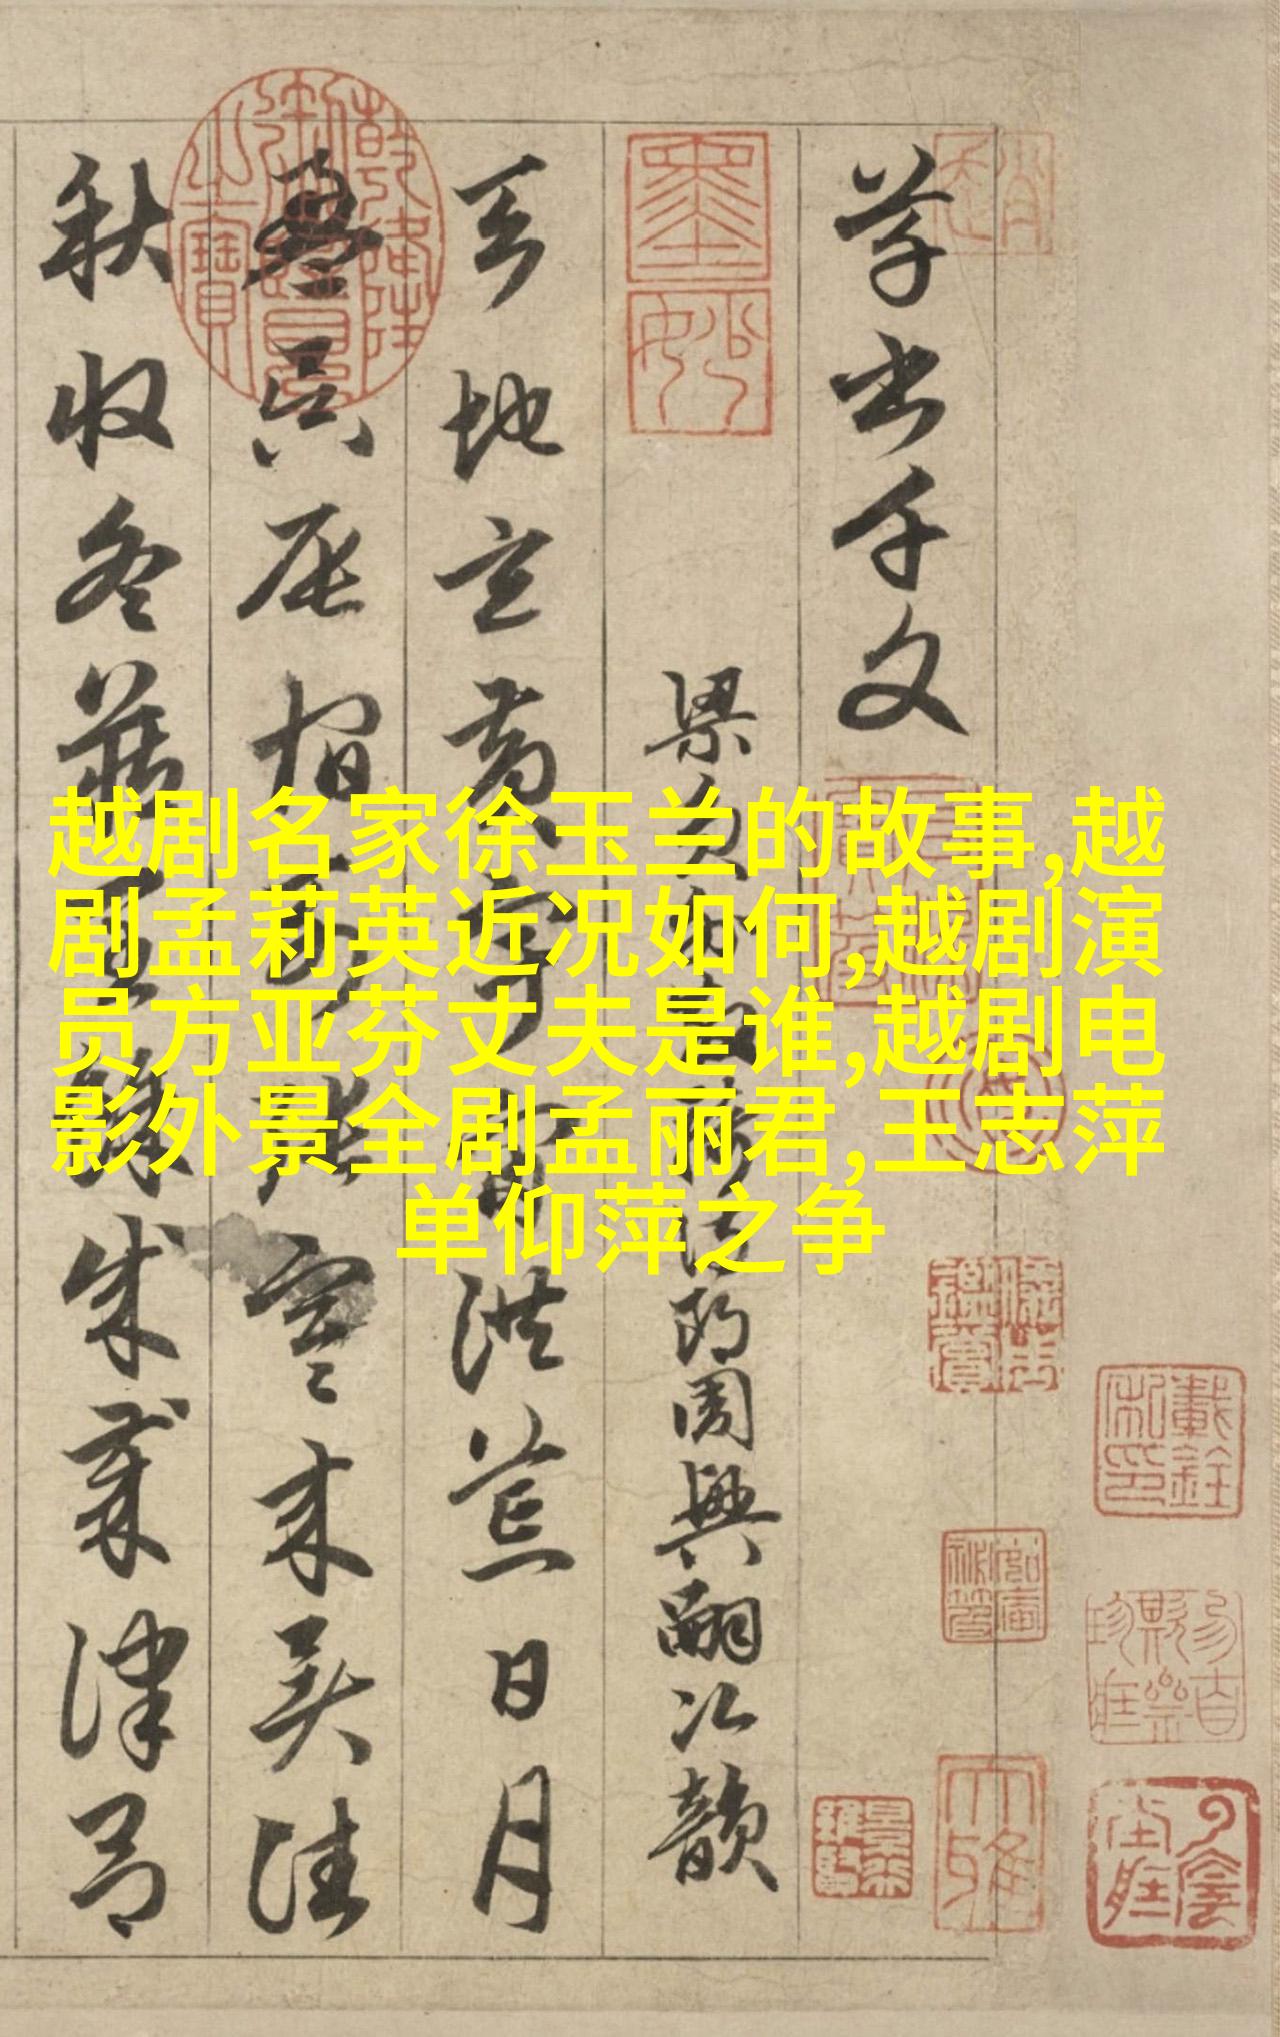 越剧名家徐玉兰的故事,越
剧孟莉英近况如何,越剧演
员方亚芬丈夫是谁,越剧电
影外景全剧孟丽君,王志萍
单仰萍之争
草書千文
梁員外散騎侍郎周興嗣次韻
天地玄黃宇宙洪荒日月
盈昃辰宿列張寒來暑往
秋收冬藏閏餘成歲律呂
墨妙
大雅